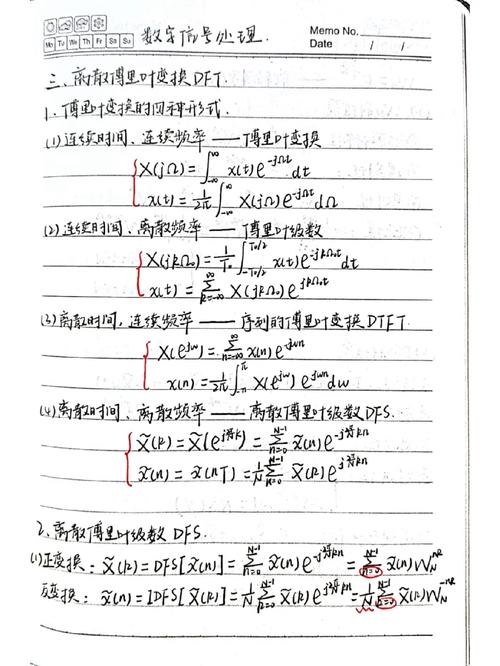 Mo Tu We Th Fr Sa Su 数字信号处理. Memo No.
Date / /
三、离散傅里叶变换 DFT.
1、傅里叶变换的四种形式.
(1) 连续时间、连续频率 —— 傅里叶变换
X(jΩ) = ∫_{-∞}^{∞} x(t) e^{-jΩt} dt
x(t) = 1/2π ∫_{-∞}^{∞} X(jΩ) e^{-jΩt} dΩ
(2) 连续时间、离散频率 —— 傅里叶级数
X(jkΩ₀) = 1/T₀ ∫_{-T₀/2}^{T₀/2} x(t) e^{-jkΩ₀t} dt
x(t) = Σ_{k=-∞}^{∞} X(jkΩ₀) e^{jkΩ₀t}
(3) 离散时间, 连续频率 —— 序列的傅里叶变换 DTFT.
X(e^{jw}) = Σ_{n=-∞}^{∞} x(n) e^{-jwn}
x(n) = 1/2π ∫_{-π}^{π} X(e^{jw}) e^{jwn} dw
(4) 离散时间、离散频率 —— 离散傅里叶级数 DFS.
X̃(k) = X̃(e^{j2π/N k}) = Σ_{n=0}^{N-1} x̃(n) e^{-j2π/N kn}
x̃(n) = x̃(nT) = 1/N Σ_{n=0}^{N-1} X̃(k) e^{j2π/N kn}
2、离散傅里叶级数 DFS.
(1) 正变换: X̃(k) = DFS[x̃(n)] = Σ_{n=0}^{N-1} x̃(n) e^{-j2π/N kn} = Σ_{n=0}^{N-1} x̃(n) W_N^{nk}
反变换: x̃(n) = IDFS[X̃(k)] = 1/N Σ_{n=0}^{N-1} X̃(k) e^{j2π/N kn} = 1/N Σ_{n=0}^{N-1} X̃(k) W_N^{-nk}